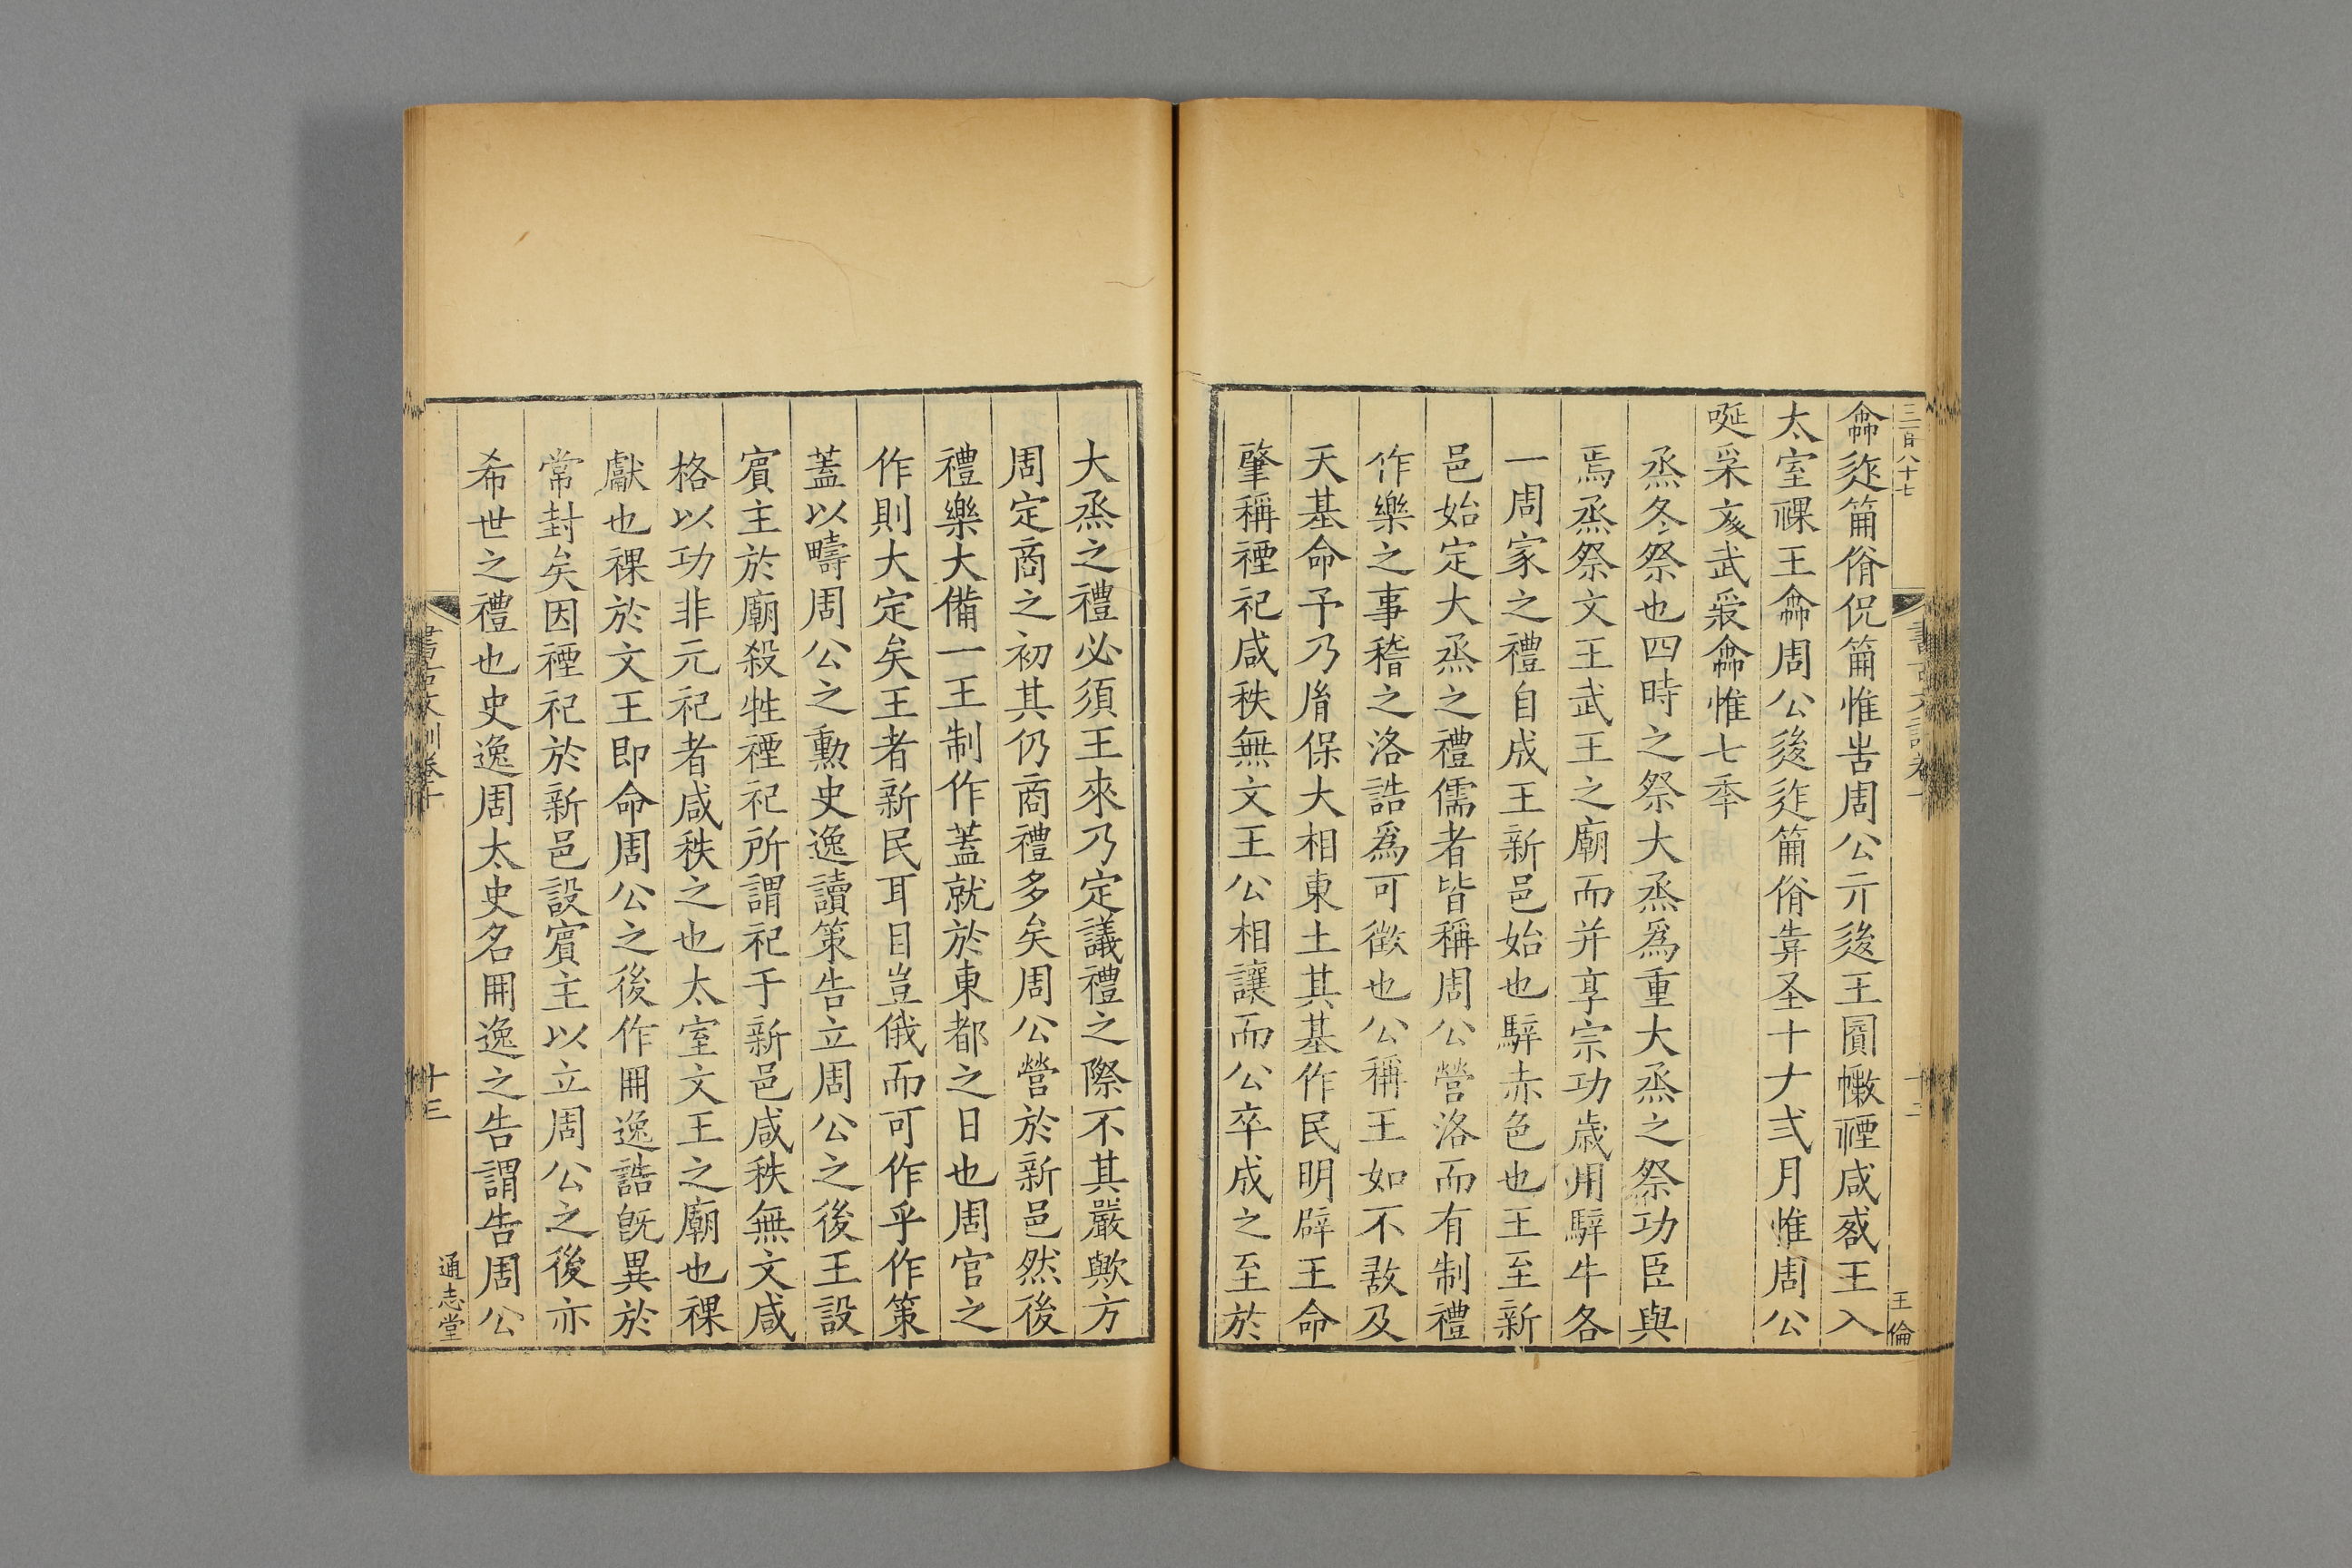 三百八十七
王倫
龠㣔箙佾侃箙惟告周公亓逡王賔𢠵禋咸𢦶王入
太室祼王龠周公逡㣔箙佾㚔圣十ナ弍月惟周公
唌采亥武𠬪龠惟七秊
烝冬祭也四時之祭大烝爲重大烝之祭功臣與
焉烝祭文王武王之廟而并享宗功歲用騂牛各
一周家之禮自成王新邑始也騂赤色也王至新
邑始定大烝之禮儒者皆稱周公營洛而有制禮
作樂之事稽之洛誥爲可徵也公稱王如不敢及
天基命予乃胤保大相東土其基作民明辟王命
肇稱禋祀咸秩無文王公相讓而公卒成之至於
大烝之禮必須王來乃定議禮之際不其嚴歟方
周定商之初其仍商禮多矣周公營於新邑然後
禮樂大備一王制作蓋就於東都之日也周官之
作則大定矣王者新民耳目豈俄而可作乎作策
蓋以疇周公之勲史逸讀策告立周公之後王設
賓主於廟殺牲禋祀所謂祀于新邑咸秩無文咸
格以功非元祀者咸秩之也太室文王之廟也祼
獻也祼於文王即命周公之後作冊逸誥旣異於
常封矣因禋祀於新邑設賓主以立周公之後亦
希世之禮也史逸周太史名冊逸之告謂告周公
書古文訓卷十
十三
通志堂